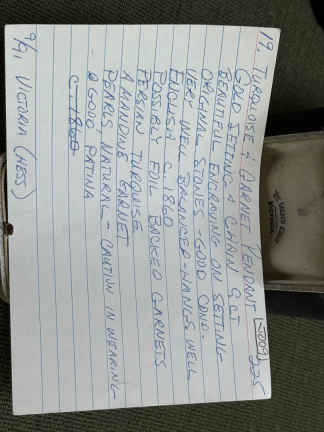 19. TURQUOISE & GARNET PENDANT 225
GOLD SETTING & CHAIN 9CT
BEAUTIFUL ENGRAVING ON SETTING
ORIGINAL STONES - GOOD COND.
VERY WELL BALANCED - HANGS WELL
ENGLISH C. 1860
POSSIBLY FOIL BACKED GARNETS
PERSIAN TURQUOISE
ALMANDINE GARNET
PEARLS NATURAL - CAUTION IN WEARING
GOOD PATINA
C-1860
9/91 VICTORIA (HESS)